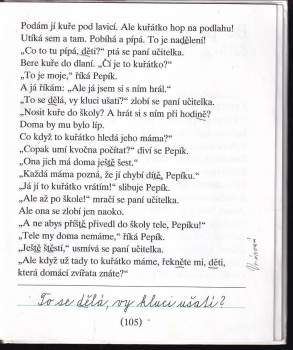 Podám jí kuře pod lavicí. Ale kuřátko hop na podlahu!
Utíká sem a tam. Pobíhá a pípá. To je nadělení!
„Co to tu pípá, děti?“ ptá se paní učitelka.
Bere kuře do dlaní. „Čí je to kuřátko?“
„To je moje,“ říká Pepík.
A já říkám: „Ale já jsem si s ním hrál.“
„To se dělá, vy kluci ušatí?“ zlobí se paní učitelka.
„Nosit kuře do školy? A hrát si s ním při hodině?
Doma by mu bylo líp.
Co když to kuřátko hledá jeho máma?“
„Copak umí kvočna počítat?“ diví se Pepík.
„Ona jich má doma ještě šest.“
„Každá máma pozná, že jí chybí dítě, Pepíku.“
„Já jí to kuřátko vrátím!“ slibuje Pepík.
„Ale až po škole!“ mračí se paní učitelka.
Ale ona se zlobí jen naoko.
„A ne abys příště přivedl do školy tele, Pepíku!“
„Tele my doma nemáme,“ říká Pepík.
„Ještě štěstí,“ usmívá se paní učitelka.
„Ale když už tady to kuřátko máme, řekněte mi, děti,
která domácí zvířata znáte?“
To se dělá, vy kluci ušatí?
(105)